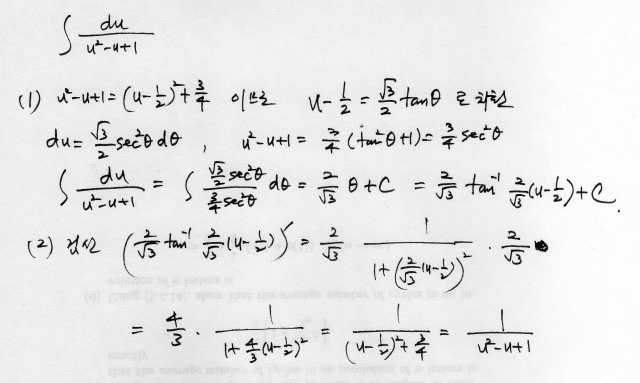 ∫ du/(u²-u+1)
(1) u²-u+1 = (u-1/2)² + 3/4 이므로 u-1/2 = √3/2 tanθ 로 치환
du = √3/2 sec²θ dθ , u²-u+1 = 3/4 (tan²θ+1) = 3/4 sec²θ
∫ du/(u²-u+1) = ∫ (√3/2 sec²θ)/(3/4 sec²θ) dθ = 2/√3 θ + C = 2/√3 tan⁻¹ 2/√3 (u-1/2) + C.
(2) 검산 (2/√3 tan⁻¹ 2/√3 (u-1/2))′ = 2/√3 · 1/(1+(2/√3 (u-1/2))²) · 2/√3
= 4/3 · 1/(1+4/3 (u-1/2)²) = 1/((u-1/2)²+3/4) = 1/(u²-u+1)